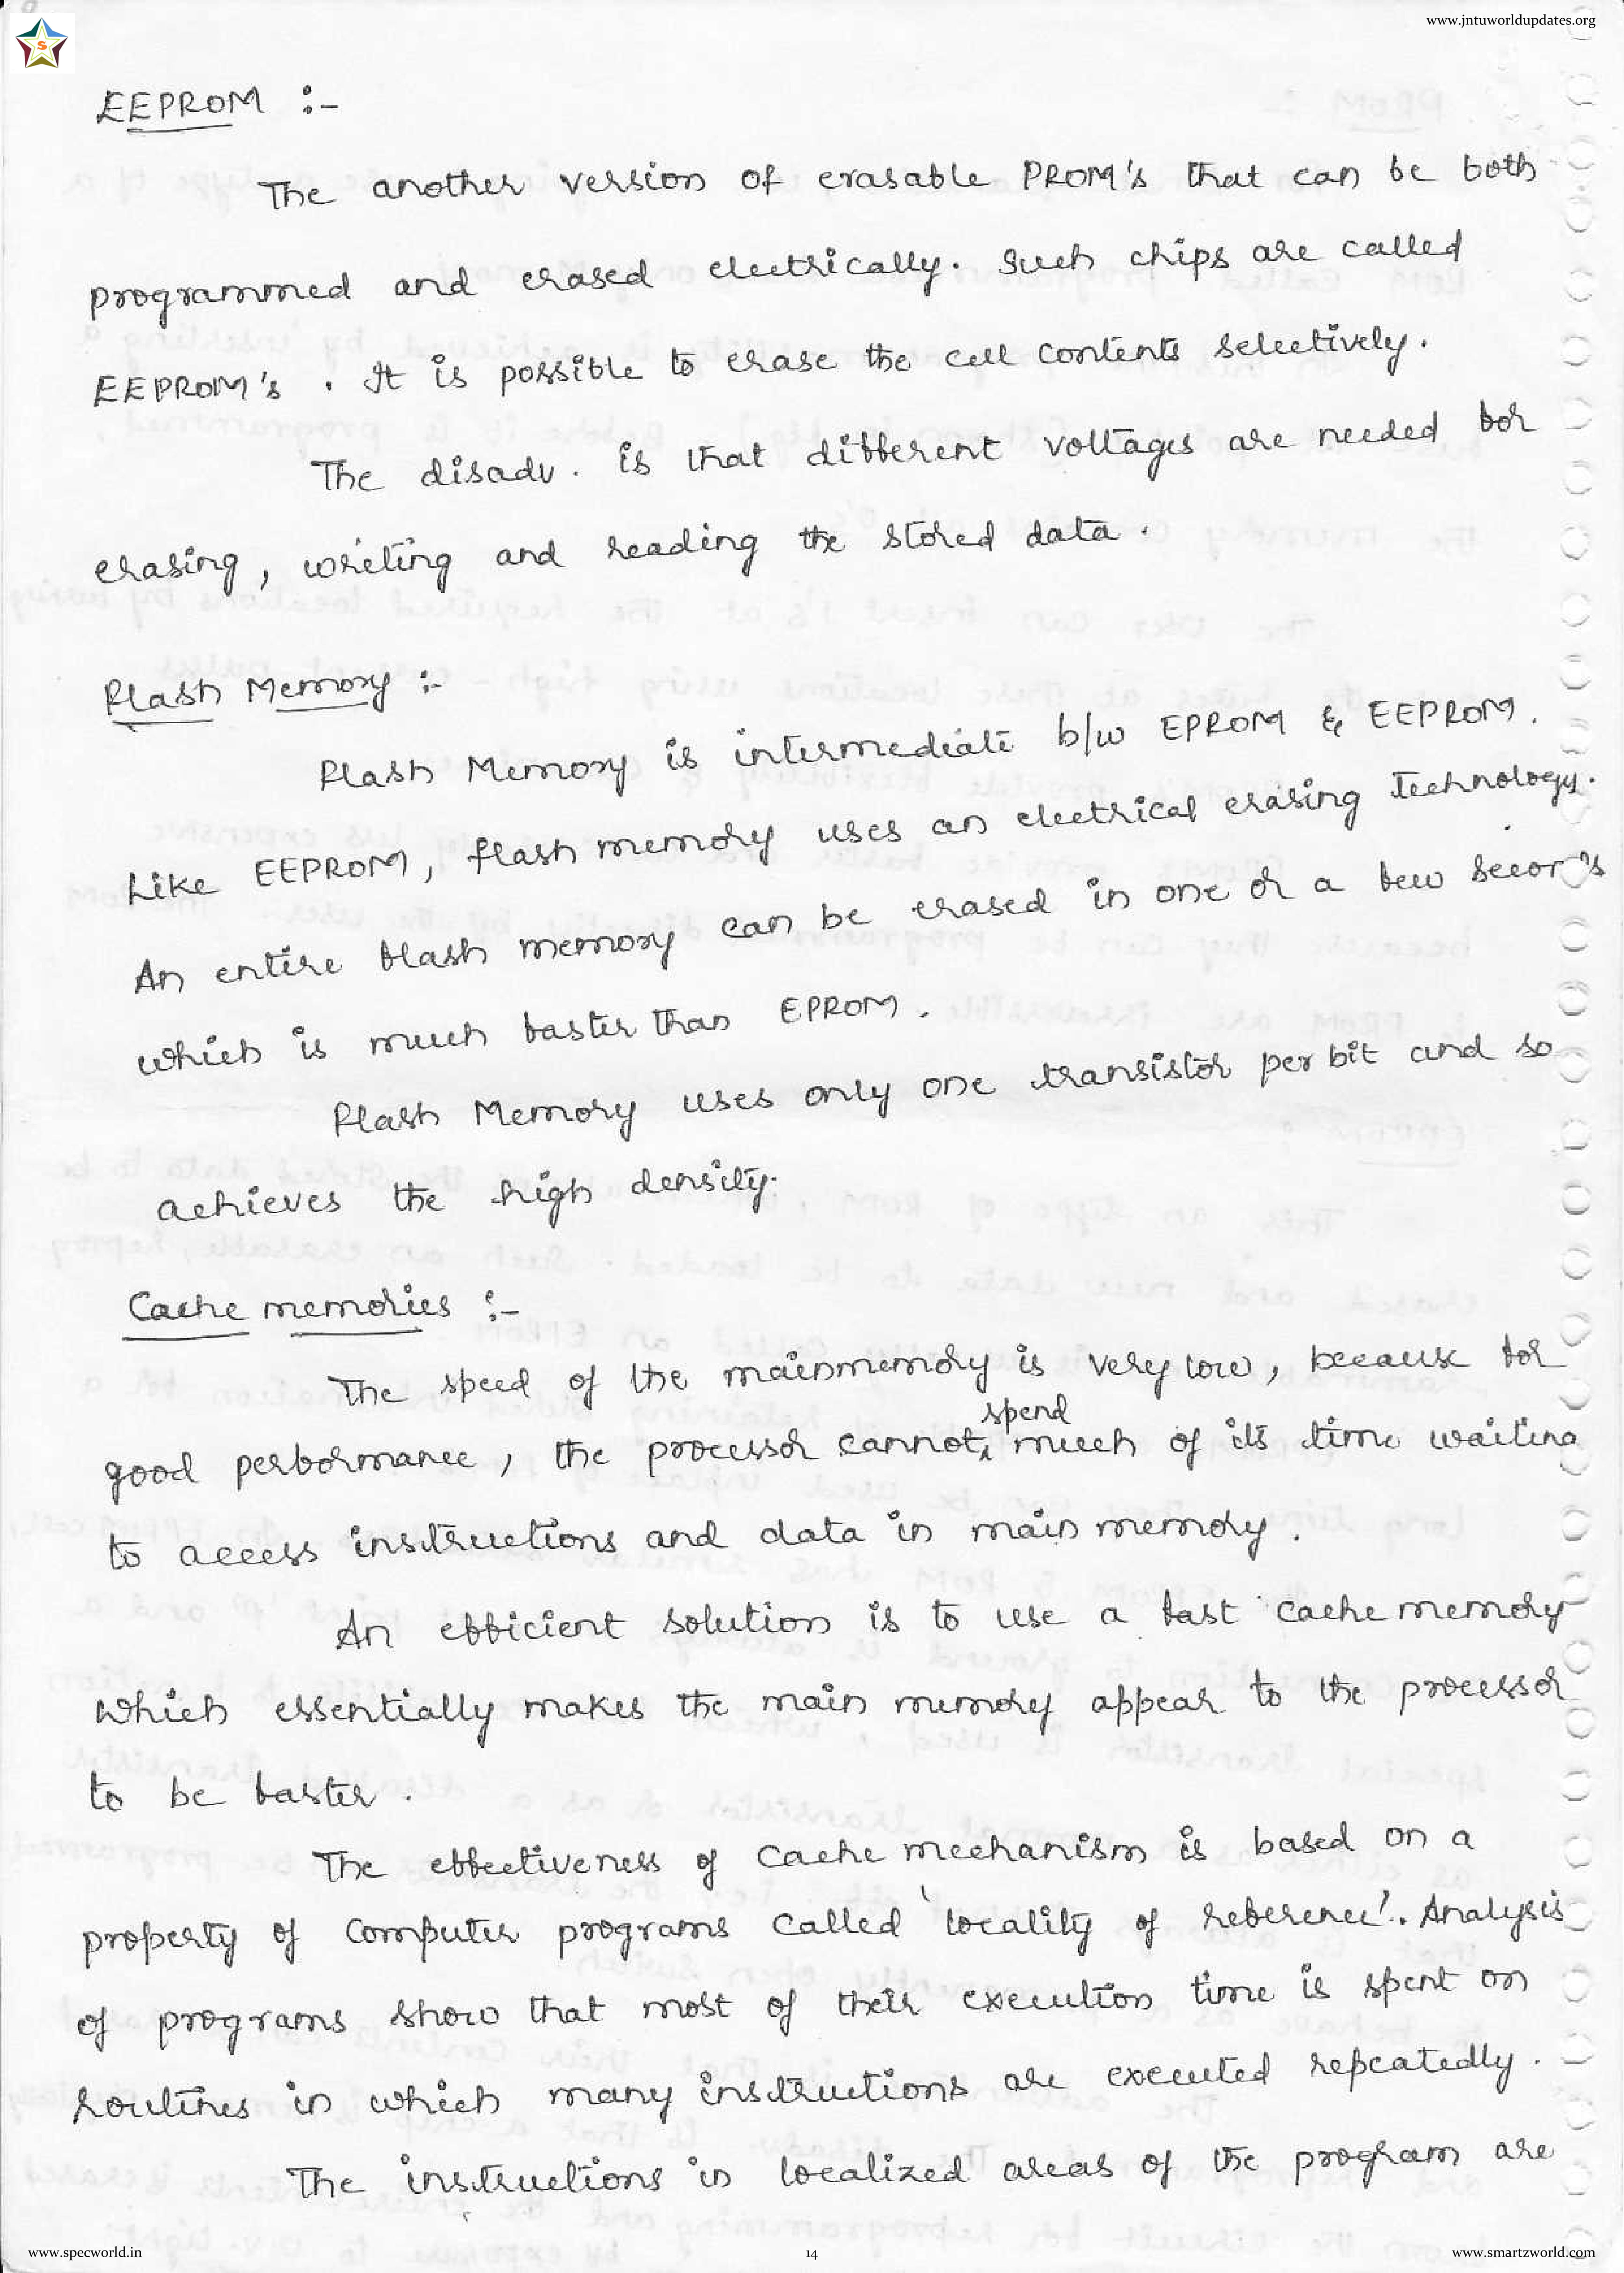 www.jntuworldupdates.org
S
EEPROM :-
The another version of erasable PROM's that can be both
programmed and erased electrically. Such chips are called
EEPROM's . It is possible to erase the cell contents selectively.
The disadv. is that different voltages are needed for
erasing, writing and reading the stored data.
Flash Memory :-
Flash Memory is intermediate b/w EPROM & EEPROM.
Like EEPROM, flash memory uses an electrical erasing technology.
An entire flash memory can be erased in one or a few
which is much faster than EPROM.
Flash Memory uses only one transistor per bit and so
achieves the high density.
Cache memories :-
The speed of the mainmemory is very low, because for
good performance, the processor cannot spend much of its time waiting
to access instructions and data in main memory.
An efficient solution is to use a fast cache memory
which essentially makes the main memory appear to the processor
to be faster.
The effectiveness of cache mechanism is based on a
property of computer programs called 'locality of reference'. Analysis
of programs show that most of their execution time is spent on
routines in which many instructions are executed repeatedly.
The instructions in localized areas of the program are
www.specworld.in
14
www.smartzworld.com